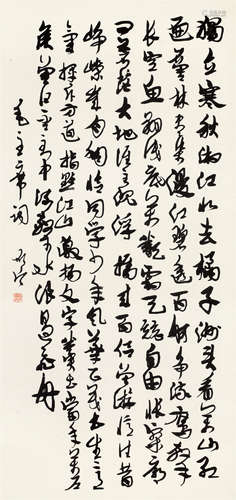 獨立寒秋湘江北去橘子洲頭看萬山紅
遍層林盡染漫江碧透百舸爭流鷹擊
長空魚翔淺底萬類霜天競自由悵寥廓
問蒼茫大地誰主沉浮攜來百侶曾遊憶往昔
崢嶸歲月稠恰同學少年風華正茂書生意
氣揮斥方遒指點江山激揚文字糞土當年萬戶
侯曾記否到中流擊水浪遏飛舟
毛主席詞